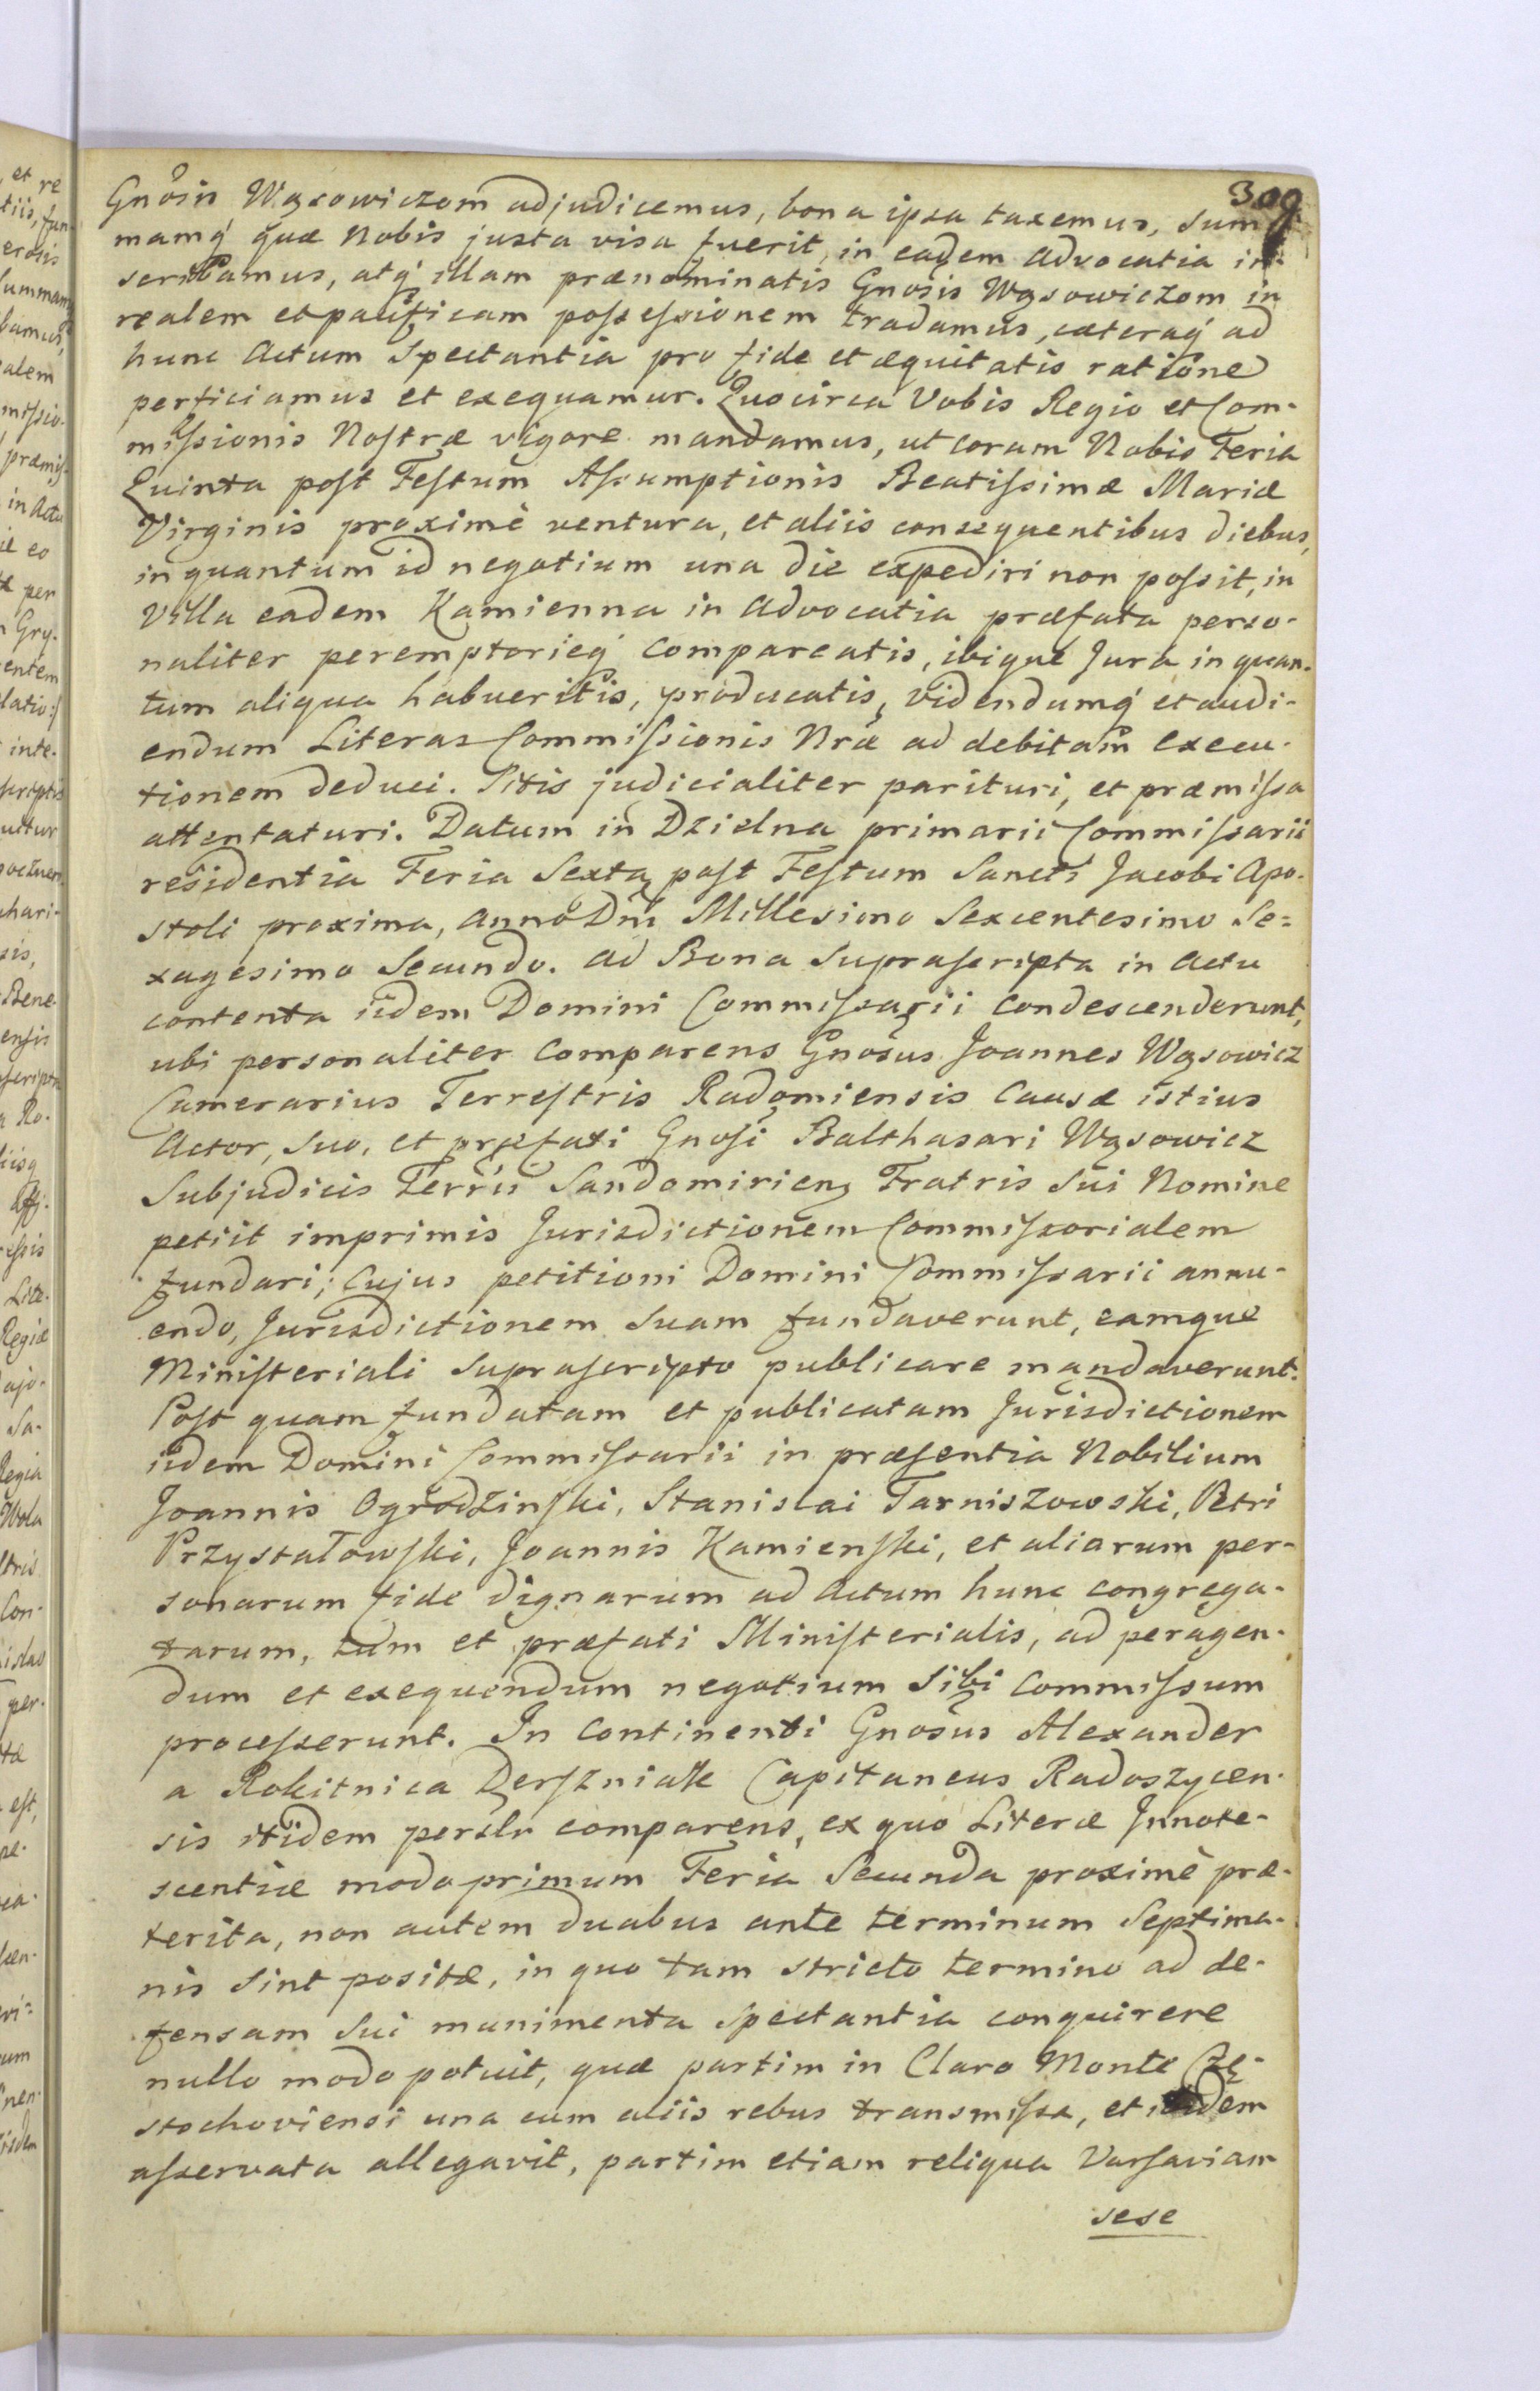 309
Gnosis Wąsowiczom adjudicemus, bona ipsa taxemus, sum-
mamq́ quæ Nobis justa visa fuerit, in eadem Advocatia in-
scribamus, atq́ illam prænominatis Gnosis Wąsowiczom in
realem et pacificam possessionem tradamus, cæteraq́ ad
hunc Actum Spectantia pro fide et æquitatis ratione
perficiamus et exequamur. Quocirca Vobis Regio et Com-
missionis Nostræ vigore mandamus, ut coram Nobis Feria
Quinta post Festum Assumptionis Beatissimæ Mariæ
Virginis proximè ventura, et aliis consequentibus diebus,
in quantum id negotium una die expediri non possit, in
Villa eadem Kamienna in Advocatia præfata perso-
naliter peremptorieq́ Compareatis, ibique Jura in quan-
tum aliqua habueritis, producatis, videndumq́ et audi-
endum Literas Commissionis Nræ ad debitam execu-
tionem deduci. Sitis judicialiter parituri, et præmissa
attentaturi. Datum in Dzielna primarii Commissarii
residentia Feria Sexta post Festum Sancti Jacobi Apo-
stoli proxima, Anno Dni Millesimo Sexcentesimo Se=
xagesimo Secundo. Ad Bona Suprascripta in Actu
contenta iidem Domini Commissarii Condescenderunt,
ubi personaliter Comparens Gnosus Joannes Wąsowicz
Camerarius Terrestris Radomiensis Causæ istius
Actor, Suo, et præfati Gnosi Balthasari Wąsowicz
Subjudicis Terrīs Sandomirien̄ Fratris Sui Nomine
petiit imprimis Jurisdictionem Commissorialem
fundari; Cujus petitioni Domini Commissarii annu-
endo, Jurisdictionem Suam fundaverunt, eamque
Ministeriali Suprascripto publicare mandaverunt.
Post quam fundatam et publicatam Jurisdictionem
iidem Domini Commissarii in præsentia Nobilium
Joannis Ogrodzinski, Stanislai Tarniszowski, Petri
Przystałowski, Joannis Kamienski, et aliarum per-
sonarum fide dignarum ad Actum hunc congrega-
tarum, tum et præfati Ministerialis, ad peragen-
dum et exequendum negotium Sibi Commissum
processerunt. In Continenti Gnosus Alexander
a Rokitnica Derszniak Capitaneus Radoszycen-
sis itidem persłr comparens, ex quo Literæ Innote-
scentiæ modo primum Feria Secunda proximè præ-
terita, non autem duabus ante terminum Septima-
nis Sint positæ, in quo tam stricto termino ad de-
fensam Sui munimenta spectantia conquirere
nullo modo potuit, quæ partim in Claro Monte Czę-
stochoviensi una cum aliis rebus transmissa, et ibidem
asservata allegavit, partim etiam reliqua Varsaviam
sese